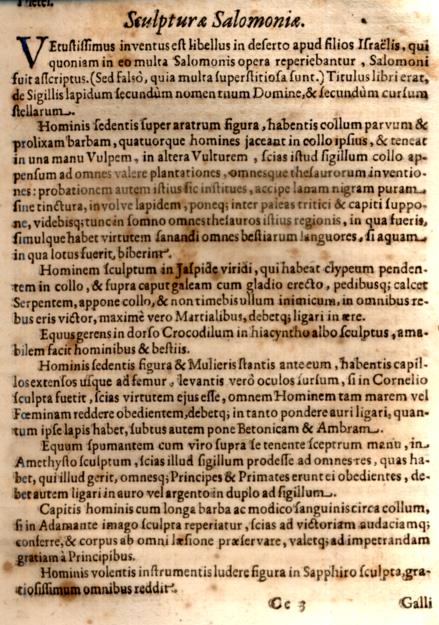 Sculpturæ Salomoniæ.
VEtustissimus inventus est libellus in deserto apud filios Israëlis, qui
quoniam in eo multa Salomonis opera reperiebantur, Salomoni
fuit ascriptus. (Sed falsò, quia multa superstitiosa sunt.) Titulus libri erat,
de Sigillis lapidum secundùm nomen tuum Domine, & secundùm cursum
stellarum.
Hominis sedentis super aratrum figura, habentis collum parvum &
prolixam barbam, quatuorque homines jaceant in collo ipsius, & teneat
in una manu Vulpem, in altera Vulturem, scias istud sigillum collo ap-
pensum ad omnes valere plantationes, omnesque thesaurorum inventio-
nes: probationem autem istius sic institues, accipe lanam nigram puram,
sine tinctura, involve lapidem, poneq; inter paleas tritici & capiti suppo-
ne, videbisq; tunc in somno omnes thesauros istius regionis, in qua fueris,
simulque habet virtutem sanandi omnes bestiarum languores, si aquam,
in qua lotus fuerit, biberint.
Hominem sculptum in Jaspide viridi, qui habeat clypeum penden-
tem in collo, & supra caput galeam cum gladio erecto, pedibusq; calcet
Serpentem, appone collo, & non timebis ullum inimicum, in omnibus re-
bus eris victor, maximè vero Martialibus, debetq; ligari in ære.
Equus gerens in dorso Crocodilum in hiacyntho albo sculptus, ama-
bilem facit hominibus & bestiis.
Hominis sedentis figura & Mulieris stantis ante eum, habentis capil-
los extensos usque ad femur, levantis verò oculos sursum, si in Cornelio
sculpta fuetit, scias virtutem ejus esse, omnem Hominem tam marem vel
Fœminam reddere obedientem, debetq; in tanto pondere auri ligari, quan-
tum ipse lapis habet, subtus autem pone Betonicam & Ambram.
Equum spumantem cum viro supra se tenente sceptrum manu, in
Amethysto sculptum, scias illud sigillum prodesse ad omnes res, quas ha-
bet, qui illud gerit, omnesq; Principes & Primates erunt ei obedientes, de-
bet autem ligari in auro vel argento in duplo ad sigillum.
Capitis hominis cum longa barba ac modico sanguinis circa collum,
si in Adamante imago sculpta reperiatur, scias ad victoriam audaciamq;
conferre, & corpus ab omni læsione præservare, valetq; ad impetrandam
gratiam à Principibus.
Hominis volentis instrumentis ludere figura in Sapphiro sculpta, gra-
tiosissimum omnibus reddit.
Cc 3 Galli